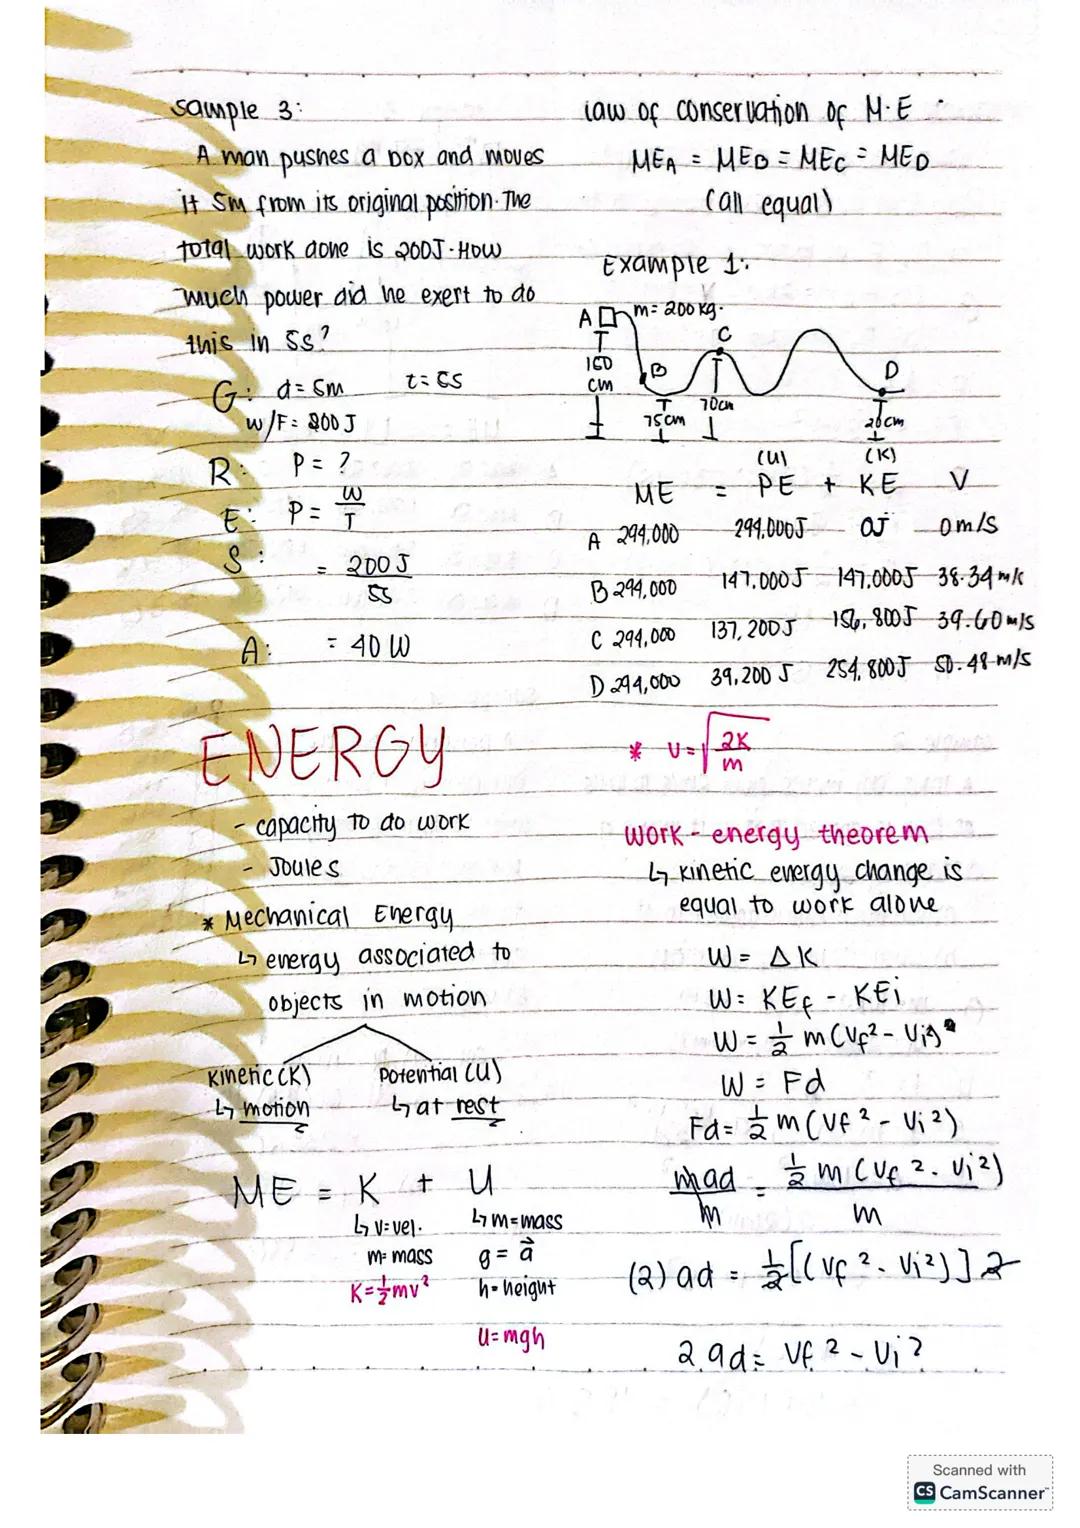 Sample 3:
A man pushes a box and moves
it 5m from its original position. The
total work done is 200J. How
much power did he exert to do
this in 5s?
G: d = 5m t = 5s
W/F = 200 J
R: P = ?
E: P = W/T
S: = 200 J / 5s
A: = 40 W
ENERGY
- capacity to do work
- Joules
* Mechanical Energy
↳ energy associated to
objects in motion
Kinetic (K) Potential (U)
↳ motion ↳ at rest
ME = K + U
↳ v = vel. ↳ m = mass
m = mass g = a⃗
K = ½mv² h = height
U = mgh
Law of conservation of M.E.
MEA = MEB = MEC = MED
(all equal)
Example 1:
A m = 200 kg.
C
150 cm B D
75cm 70cm 20cm
(U) (K)
ME = PE + KE V
A 294,000 294,000J 0J 0 m/s
B 294,000 147,000J 147,000J 38.34 m/s
C 294,000 137,200J 156,800J 39.60 m/s
D 294,000 39,200 J 254,800J 50.48 m/s
* v = √2K/m
work - energy theorem
↳ kinetic energy change is
equal to work alone
W = ΔK
W = KEf - KEi
W = ½ m(Vf² - Vi)²
W = Fd
Fd = ½ m (Vf² - Vi²)
mad/m = ½ m (Vf² - Vi²)/m
(2) ad = ½[(Vf² - Vi²)] 2
2ad = Vf² - Vi²
Scanned with
CS CamScanner